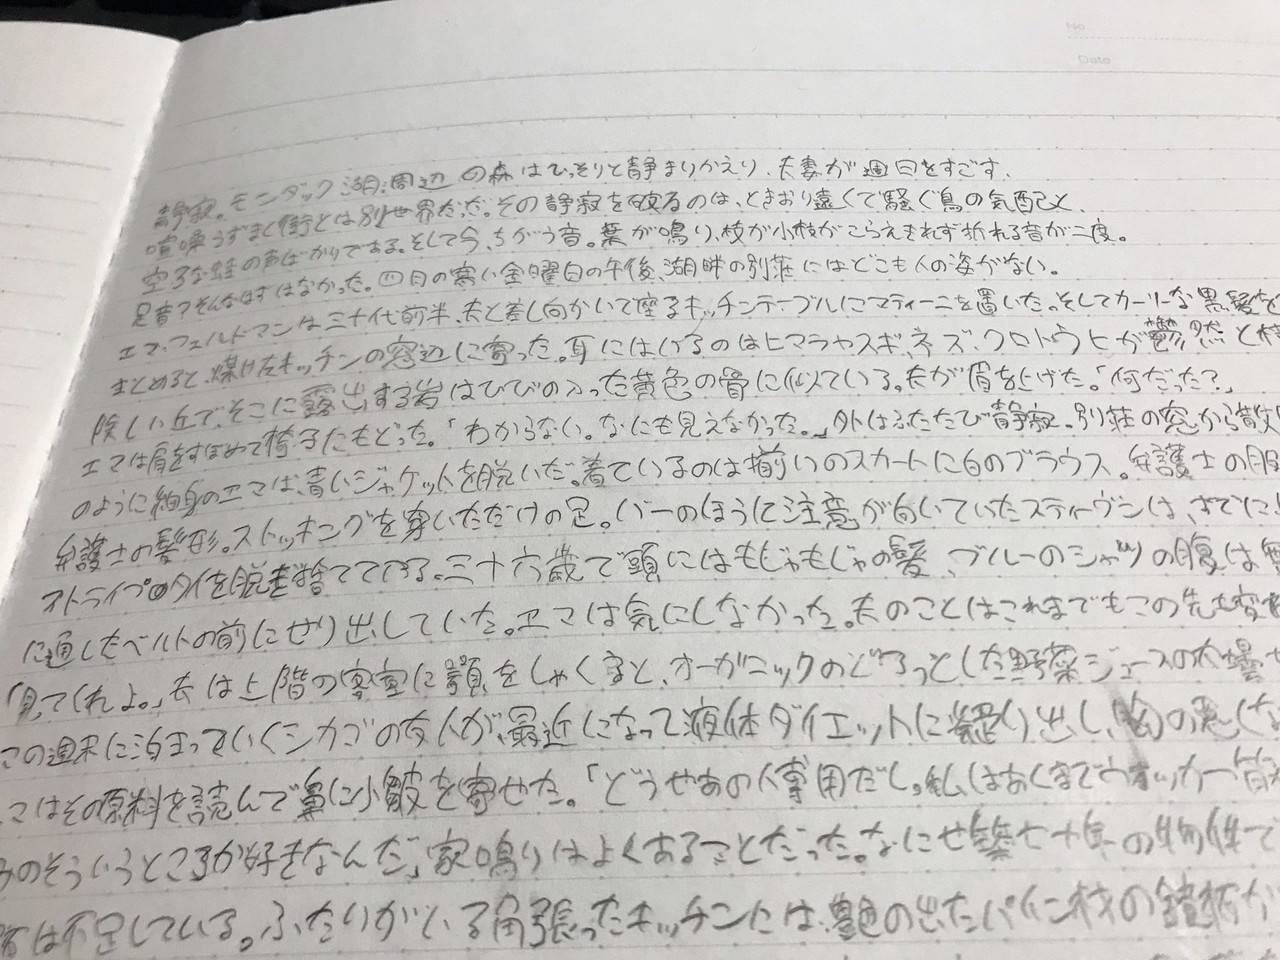 No
Date
静寂。モンダック湖周辺の森はひっそりと静まりかえり、夫妻が週日をすごす
喧噪うずまく街とは別世界だった。その静寂を破るのは、ときおり遠くで騒ぐ鳥の気配と、
空ろな蛙の声ばかりである。そして今、ちがう音。葉が鳴り、枝が小枝がこらえきれず折れる音が二度。
足音?そんなはずはなかった。四月の寒い金曜日の午後、湖畔の別荘にはどこも人の姿がない。
エマ・フェルドマンは三十代前半、夫と差し向かいで座るキッチンテーブルにマティーニを置いた。そしてカーリーな黒髪を
まとめると、煤けたキッチンの窓辺に寄った。耳にはいるのはヒマラヤスギ、ネズ、クロトウヒが鬱然と
険しい丘で、そこに露出する岩はひびの入った黄色の骨に似ている。夫が眉を上げた。「何だった?」
エマは肩をすぼめて椅子にもどった。「わからない。なにも見えなかった。」外はふたたび静寂。別荘の窓から
のように細身のエマは、青いジャケットを脱いだ。着ているのは揃いのスカートに白のブラウス。弁護士の服
弁護士の髪形。ストッキングを穿いただけの足。バーのほうに注意が向いていたスティーヴンは、すでに
ストライプのタイを脱ぎ捨ててある。三十六歳で頭にはもじゃもじゃの髪、ブルーのシャツの腹は
に通したベルトの前にせり出していた。エマは気にしなかった。夫のことはこれまでもこの先も変
「見てくれよ。」夫は上階の客室に顎をしゃくると、オーガニックのどろっとした野菜ジュースの大
この週末に泊まっていくシカゴの友人が、最近になって液体ダイエットに繰り出し、胸の悪くな
マはその原料を読んで鼻に小皺を寄せた。「どうせあの人専用だし。私はあくまでウオッカ一筋
のそういうところが好きなんだ」家鳴りはよくあることだった。なにせ築七十年の物件で
は不足している。ふたりがいる角張ったキッチンには、艶の出たパイン材の